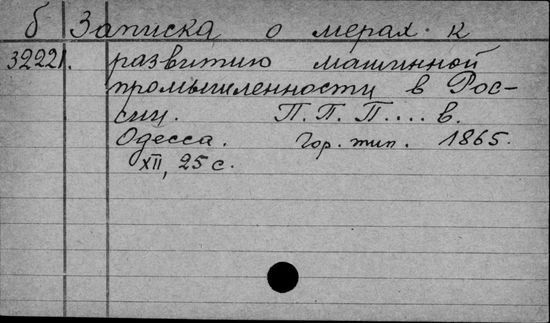 б Записка о мерах к
32221. развитию машинной
промышленности в Рос-
сии. П. П. П.... в.
Одесса. Гор. тип. 1865.
XII, 25 с.